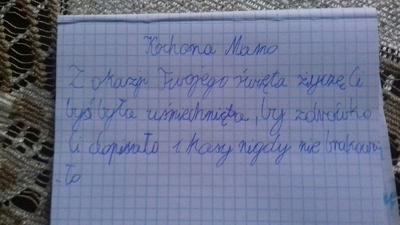 Kochana Mamo
Z okazji Twojego święta życzę Ci
byś była uśmiechnięta, by zdrówko
Ci dopisało i kasy nigdy nie brakowa
-ło